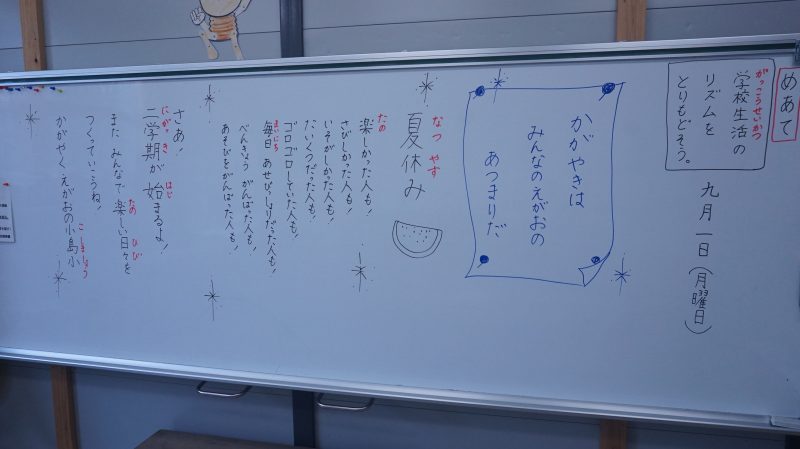 めあて
学校生活の
がっこうせいかつ
リズムを
とりもどそう。
九月一日(月曜日)
かがやきは
みんなのえがおの
あつまりだ
夏休み
なつやす
楽しかった人も!
たの
さびしかった人も!
いそがしかった人も!
たいくつだった人も!
ゴロゴロしていた人も!
毎日あせびっしょりだった人も!
まいにち
べんきょうがんばった人も!
あそびをがんばった人も!
さあ!
二学期が始まるよ!
にがっき はじ
またみんなで楽しい日々を
たの ひび
つくっていこうね!
かがやくえがおの小島小
こじましょう